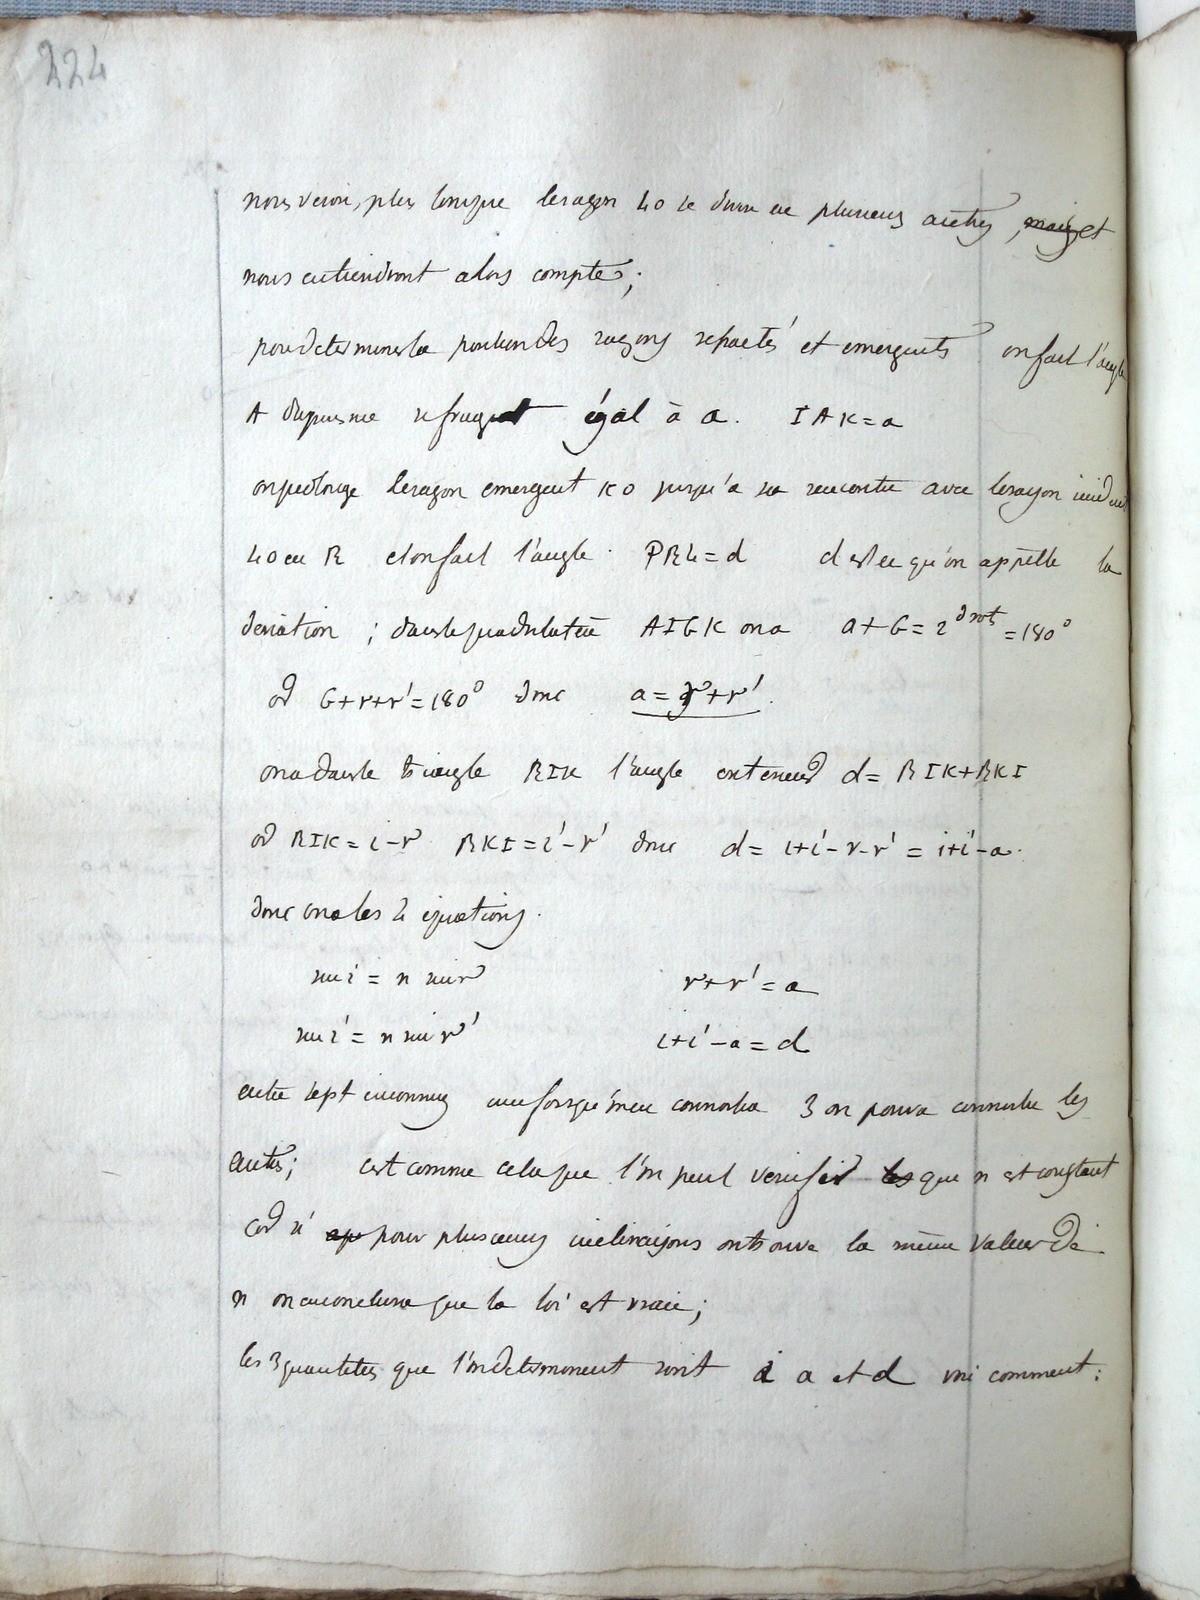 224
nous verrons plus lorsque le rayon LO se divise en plusieurs autres, mais et
nous en tiendront alors compte;
pour determiner la position des rayons refractés et emergents on fait l'angle
A du prisme refringent égal à a. IAK = a
on prolonge le rayon emergent KO jusqu'a sa rencontre avec le rayon incident
LO en R et on fait l'angle PRL = d d est ce qu'on appelle la
deviation; dans le quadrilatère AIGK on a a + G = 2 droits = 180°
or G + r + r' = 180° donc a = r + r'.
on a dans le triangle RIK l'angle exterieur d = RIK + RKI
or RIK = i - r RKI = i' - r' donc d = i + i' - r - r' = i + i' - a.
donc on a les 4 équations.
sin i = n sin r r + r' = a
sin i' = n sin r' i + i' - a = d
entre sept inconnues une fois qu'on en connoitra 3 on pourra connoitre les
autres; c'est comme cela que l'on peut verifier les que n est constant
car si pour plusieurs inclinaisons on trouve la même valeur de
n on en conclura que la loi est vraie;
les 3 quantités que l'on determinent sont i a et d voici comment: